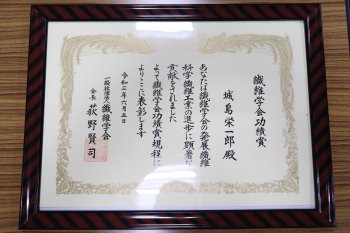 繊維学会功績賞
城島栄一郎 殿
あなたは繊維学会の発展繊維
科学繊維工業の進歩に顕著な
貢献をされました
よって繊維学会功績賞規程に
よりここに表彰します
令和三年六月五日
一般社団法人繊維学会
会長 荻野賢司